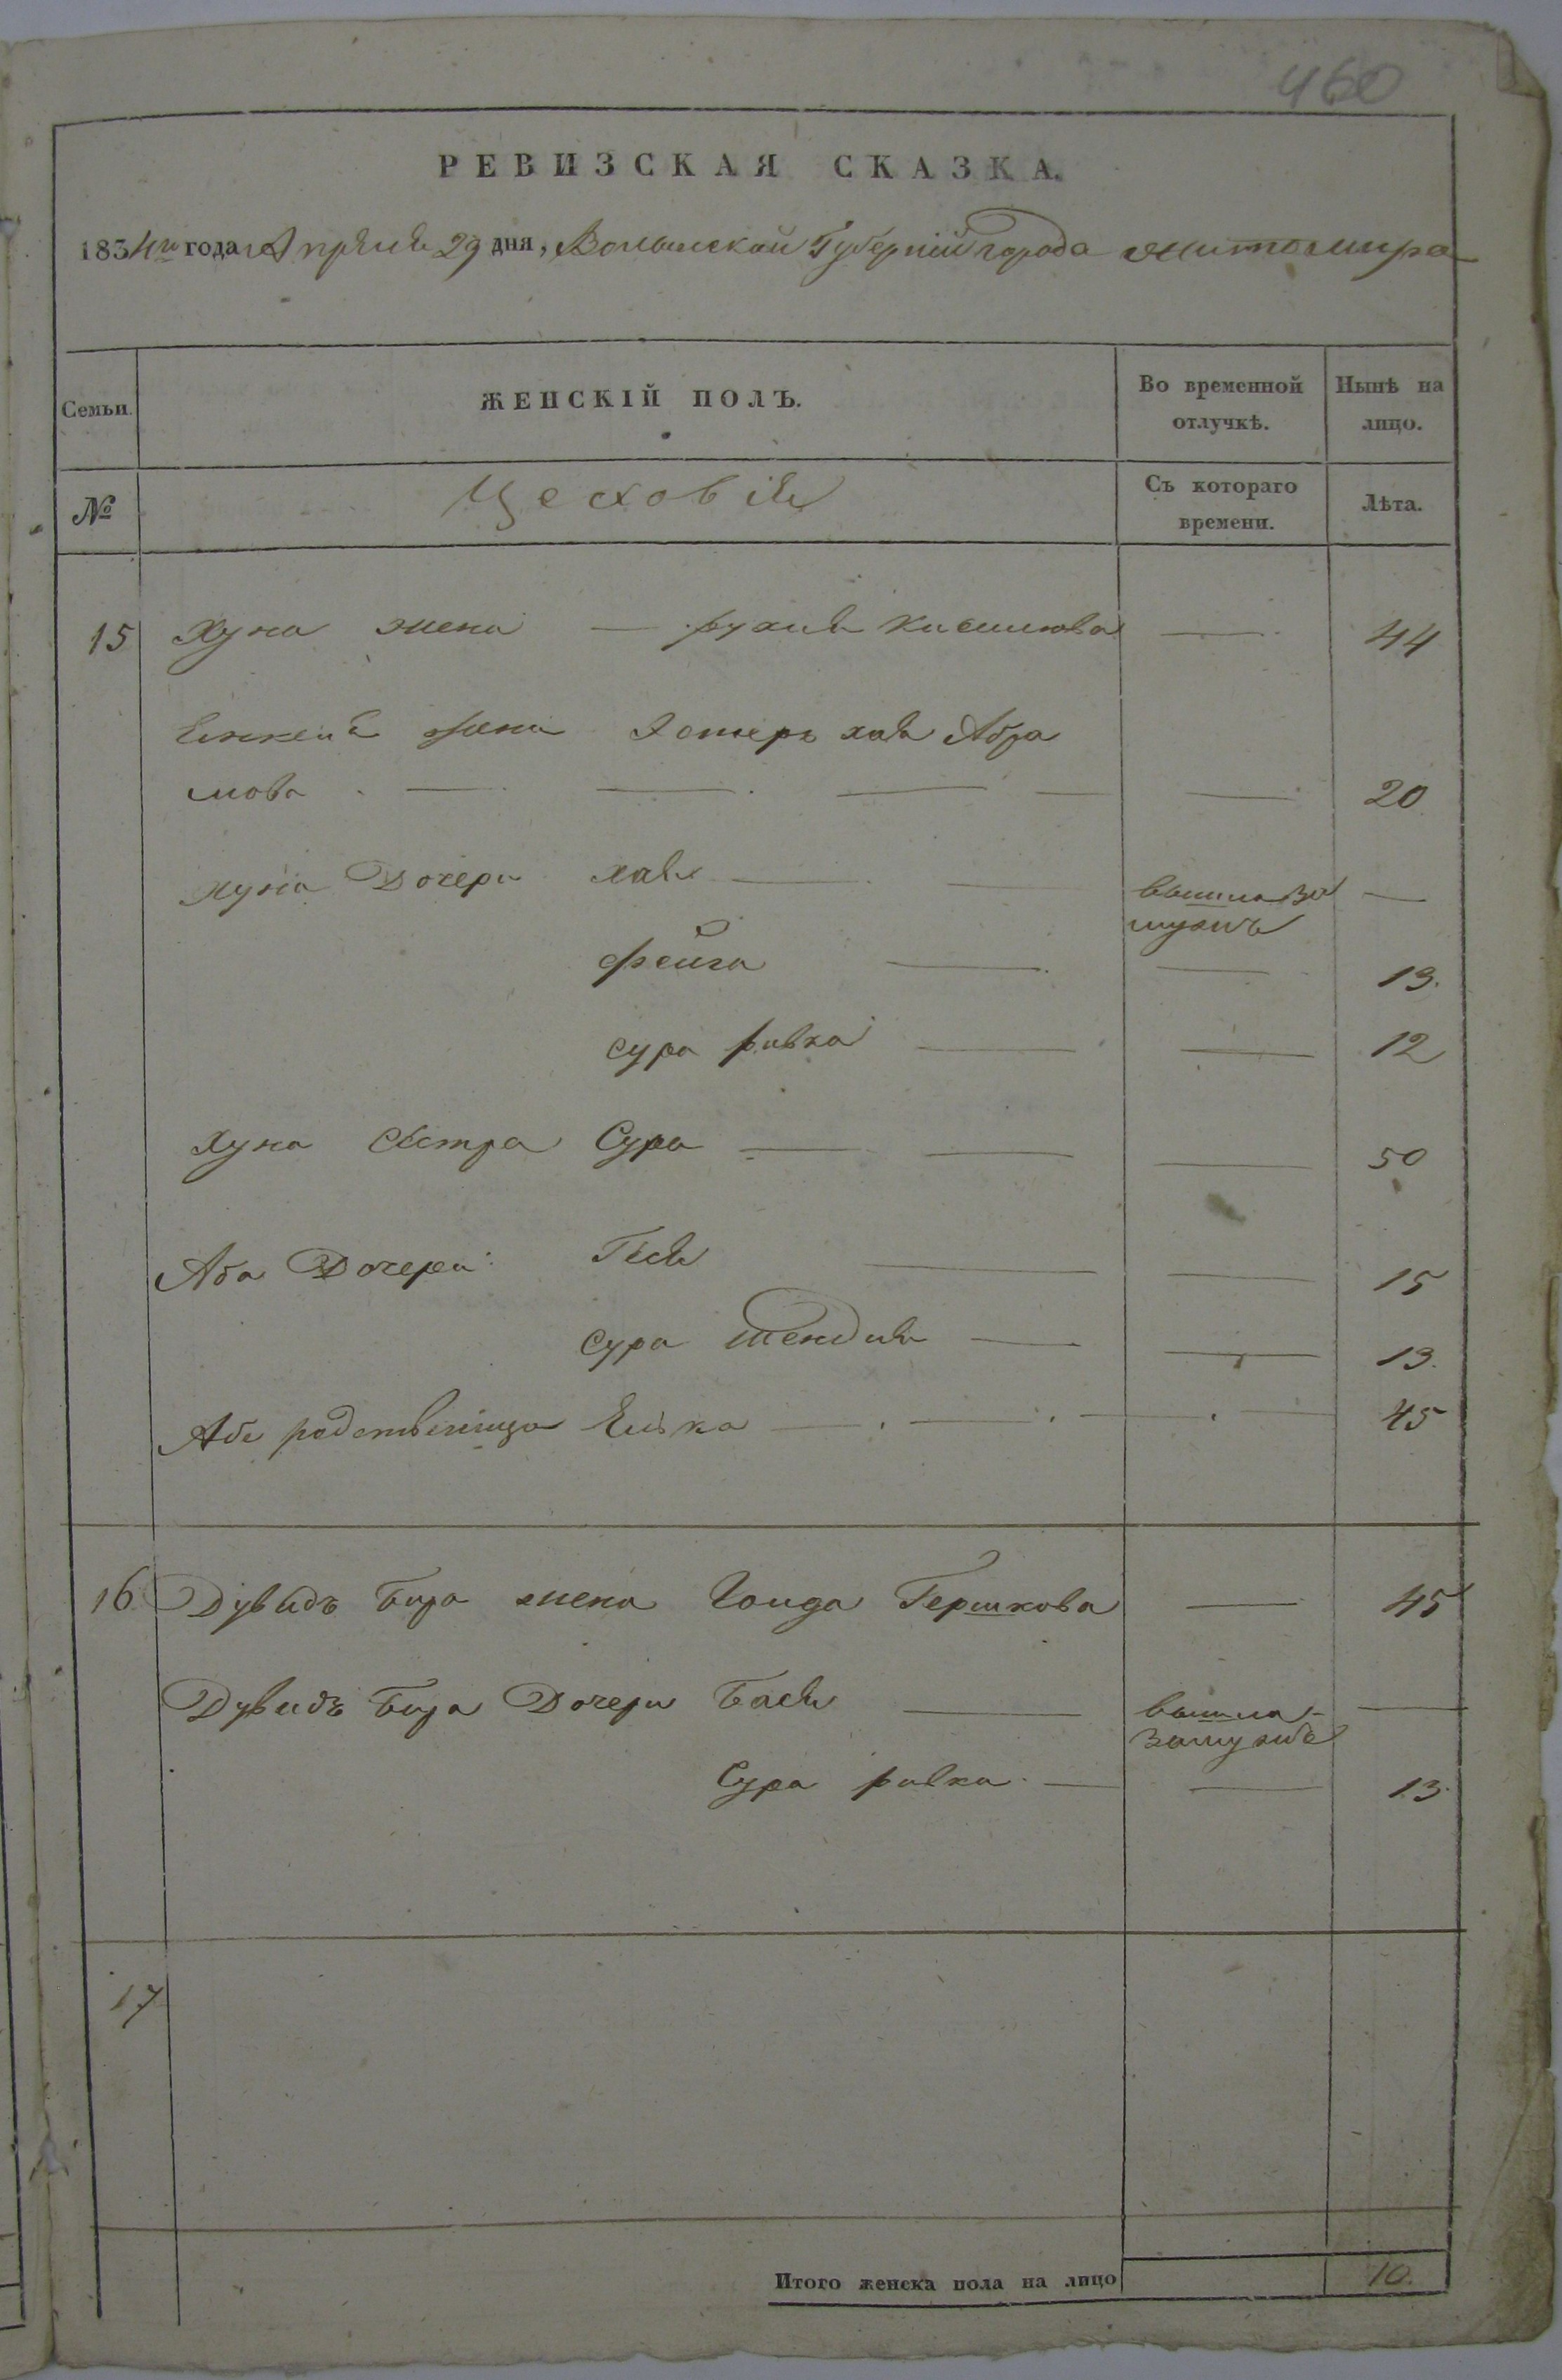 460
РЕВИЗСКАЯ СКАЗКА.
1834го года Апреля 29 дня, Волынской Губерніи города Житомира
Семьи. ЖЕНСКІЙ ПОЛЪ. Во временной отлучкѣ. Нынѣ на лицо.
№ Цеховія Съ котораго времени. Лѣта.
15 Хуна жена — рухля Кисилюва — 44
жена Эстеръ хая Абра
мова — — — — — 20
Хуна Дочери хая — — вышла за мужъ —
фейга — — 13.
сура ривка — — 12
Хуна сестра Сура — — — 50
Аба Дочери: Гися — — 15
сура шендля — — 13.
Аба родственица Елька — — — — 45
16 Дувидъ Бира жена Гершкова — 45
Дувидъ Бира Дочери Бася — вышла замужъ —
Сура ривка — — 13.
17
Итого женска пола на лицо 10.